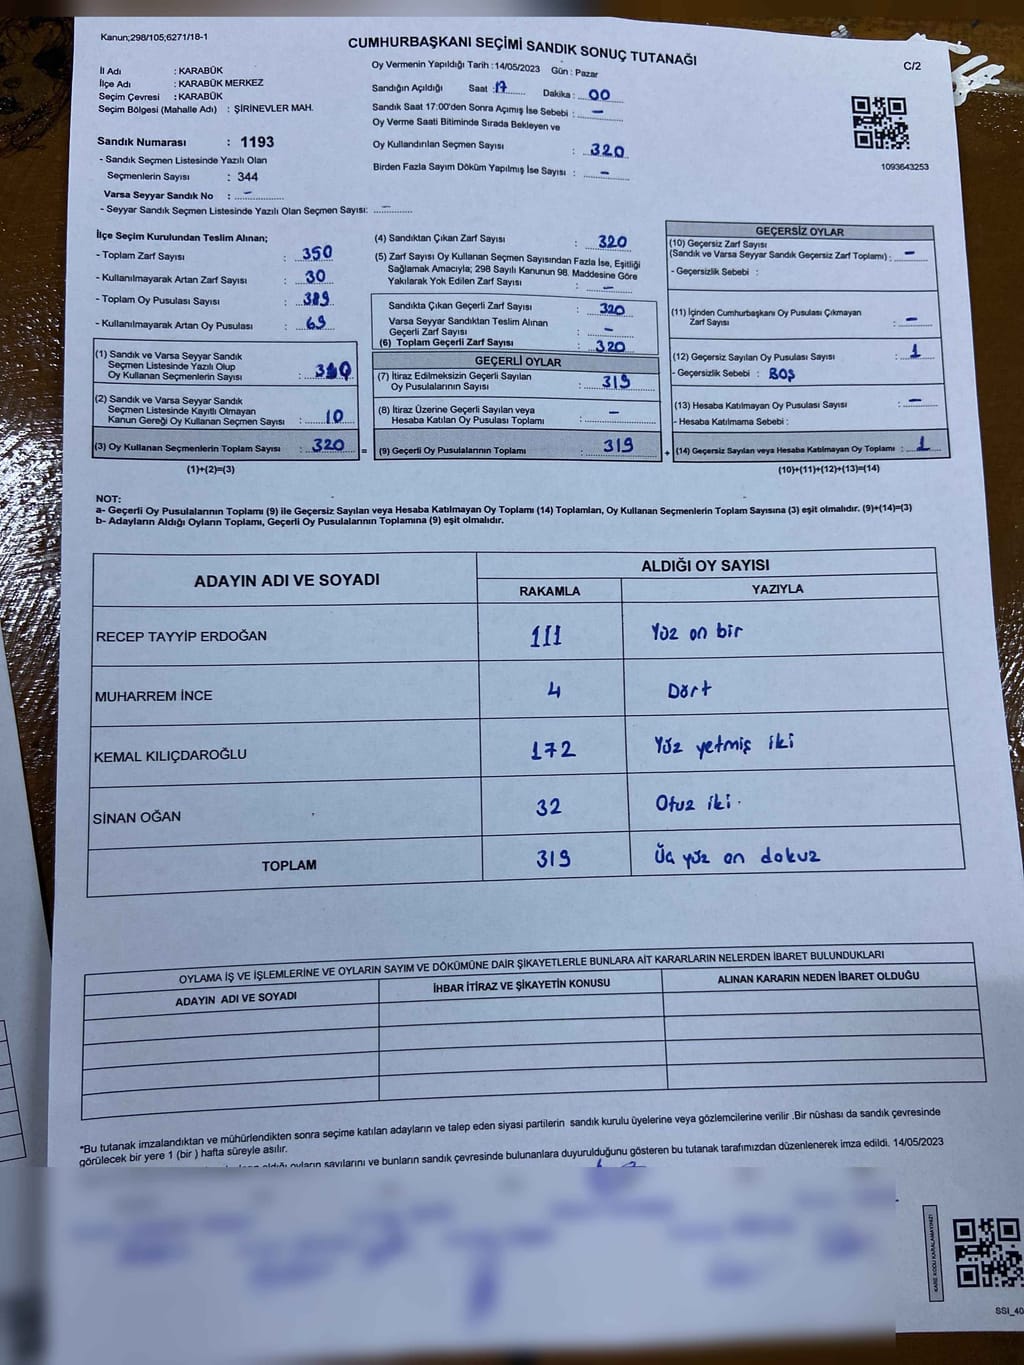 Kanun;298/105;6271/18-1
CUMHURBAŞKANI SEÇİMİ SANDIK SONUÇ TUTANAĞI
C/2
İl Adı : KARABÜK
İlçe Adı : KARABÜK MERKEZ
Seçim Çevresi : KARABÜK
Seçim Bölgesi (Mahalle Adı) : ŞİRİNEVLER MAH.
Sandık Numarası : 1193
- Sandık Seçmen Listesinde Yazılı Olan
Seçmenlerin Sayısı : 344
Varsa Seyyar Sandık No : -
- Seyyar Sandık Seçmen Listesinde Yazılı Olan Seçmen Sayısı: -
Oy Vermenin Yapıldığı Tarih : 14/05/2023 Gün : Pazar
Sandığın Açıldığı Saat : 17 Dakika : 00
Sandık Saat 17:00'den Sonra Açımış İse Sebebi : -
Oy Verme Saati Bitiminde Sırada Bekleyen ve
Oy Kullandırılan Seçmen Sayısı : 320
Birden Fazla Sayım Döküm Yapılmış İse Sayısı : -
1093643253
İlçe Seçim Kurulundan Teslim Alınan;
- Toplam Zarf Sayısı : 350
- Kullanılmayarak Artan Zarf Sayısı : 30
- Toplam Oy Pusulası Sayısı : 389
- Kullanılmayarak Artan Oy Pusulası : 69
(1) Sandık ve Varsa Seyyar Sandık
Seçmen Listesinde Yazılı Olup
Oy Kullanan Seçmenlerin Sayısı :
(2) Sandık ve Varsa Seyyar Sandık
Seçmen Listesinde Kayıtlı Olmayan
Kanun Gereği Oy Kullanan Seçmen Sayısı : 10
(3) Oy Kullanan Seçmenlerin Toplam Sayısı : 320 =
(1)+(2)=(3)
(4) Sandıktan Çıkan Zarf Sayısı : 320
(5) Zarf Sayısı Oy Kullanan Seçmen Sayısından Fazla İse, Eşitliği
Sağlamak Amacıyla; 298 Sayılı Kanunun 98. Maddesine Göre
Yakılarak Yok Edilen Zarf Sayısı : -
Sandıkta Çıkan Geçerli Zarf Sayısı : 320
Varsa Seyyar Sandıktan Teslim Alınan
Geçerli Zarf Sayısı : -
(6) Toplam Geçerli Zarf Sayısı : 320
GEÇERLİ OYLAR
(7) İtiraz Edilmeksizin Geçerli Sayılan
Oy Pusulalarının Sayısı : 319
(8) İtiraz Üzerine Geçerli Sayılan veya
Hesaba Katılan Oy Pusulası Toplamı : -
(9) Geçerli Oy Pusulalarının Toplamı : 319 +
GEÇERSİZ OYLAR
(10) Geçersiz Zarf Sayısı
(Sandık ve Varsa Seyyar Sandık Geçersiz Zarf Toplamı) : -
- Geçersizlik Sebebi :
(11) İçinden Cumhurbaşkanı Oy Pusulası Çıkmayan
Zarf Sayısı : -
(12) Geçersiz Sayılan Oy Pusulası Sayısı : 1
- Geçersizlik Sebebi : BOŞ
(13) Hesaba Katılmayan Oy Pusulası Sayısı : -
- Hesaba Katılmama Sebebi :
(14) Geçersiz Sayılan veya Hesaba Katılmayan Oy Toplamı : 1
(10)+(11)+(12)+(13)=(14)
NOT:
a- Geçerli Oy Pusulasının Toplamı (9) ile Geçersiz Sayılan veya Hesaba Katılmayan Oy Toplamı (14) Toplamları, Oy Kullanan Seçmenlerin Toplam Sayısına (3) eşit olmalıdır. (9)+(14)=(3)
b- Adayların Aldığı Oyların Toplamı, Geçerli Oy Pusulalarının Toplamına (9) eşit olmalıdır.
ADAYIN ADI VE SOYADI
ALDIĞI OY SAYISI
RAKAMLA YAZIYLA
RECEP TAYYİP ERDOĞAN 111 Yüz on bir
MUHARREM İNCE 4 Dört
KEMAL KILIÇDAROĞLU 172 Yüz yetmiş iki
SİNAN OĞAN 32 Otuz iki
TOPLAM 319 Üç yüz on dokuz
OYLAMA İŞ VE İŞLEMLERİNE VE OYLARIN SAYIM VE DÖKÜMÜNE DAİR ŞİKAYETLERLE BUNLARA AİT KARARLARIN NELERDEN İBARET BULUNDUKLARI
ADAYIN ADI VE SOYADI İHBAR İTİRAZ VE ŞİKAYETİN KONUSU ALINAN KARARIN NEDEN İBARET OLDUĞU
*Bu tutanak imzalandıktan ve mühürlendikten sonra seçime katılan adayların ve talep eden siyasi partilerin sandık kurulu üyelerine veya gözlemcilerine verilir .Bir nüshası da sandık çevresinde
görülecek bir yere 1 (bir ) hafta süreyle asılır.
aldığı oyların sayılarını ve bunların sandık çevresinde bulunanlara duyurulduğunu gösteren bu tutanak tarafımızdan düzenlenerek imza edildi. 14/05/2023
KARE KODU KARALAMAYINIZ!
SSI_40